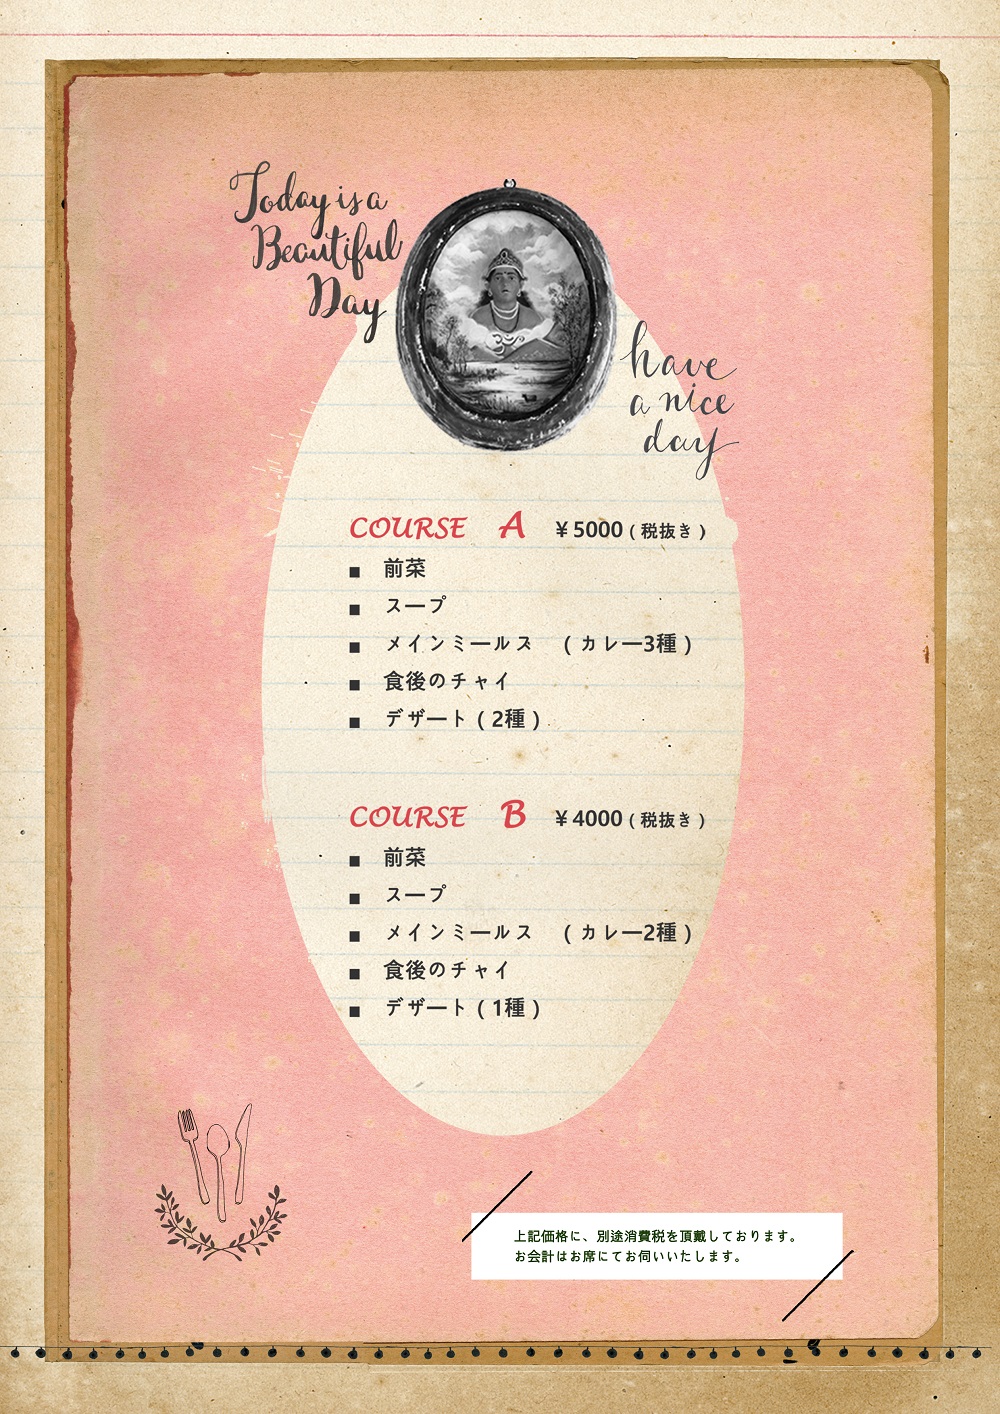 Today is a
Beautiful
Day
have
a nice
day
COURSE A ¥5000(税抜き)
■ 前菜
■ スープ
■ メインミールス (カレー3種)
■ 食後のチャイ
■ デザート(2種)
COURSE B ¥4000(税抜き)
■ 前菜
■ スープ
■ メインミールス (カレー2種)
■ 食後のチャイ
■ デザート(1種)
上記価格に、別途消費税を頂戴しております。
お会計はお席にてお伺いいたします。